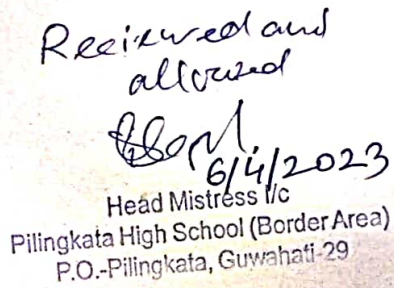 Received and
allowed
6/4/2023
Head Mistress I/c
Pilingkata High School (Border Area)
P.O.-Pilingkata, Guwahati-29